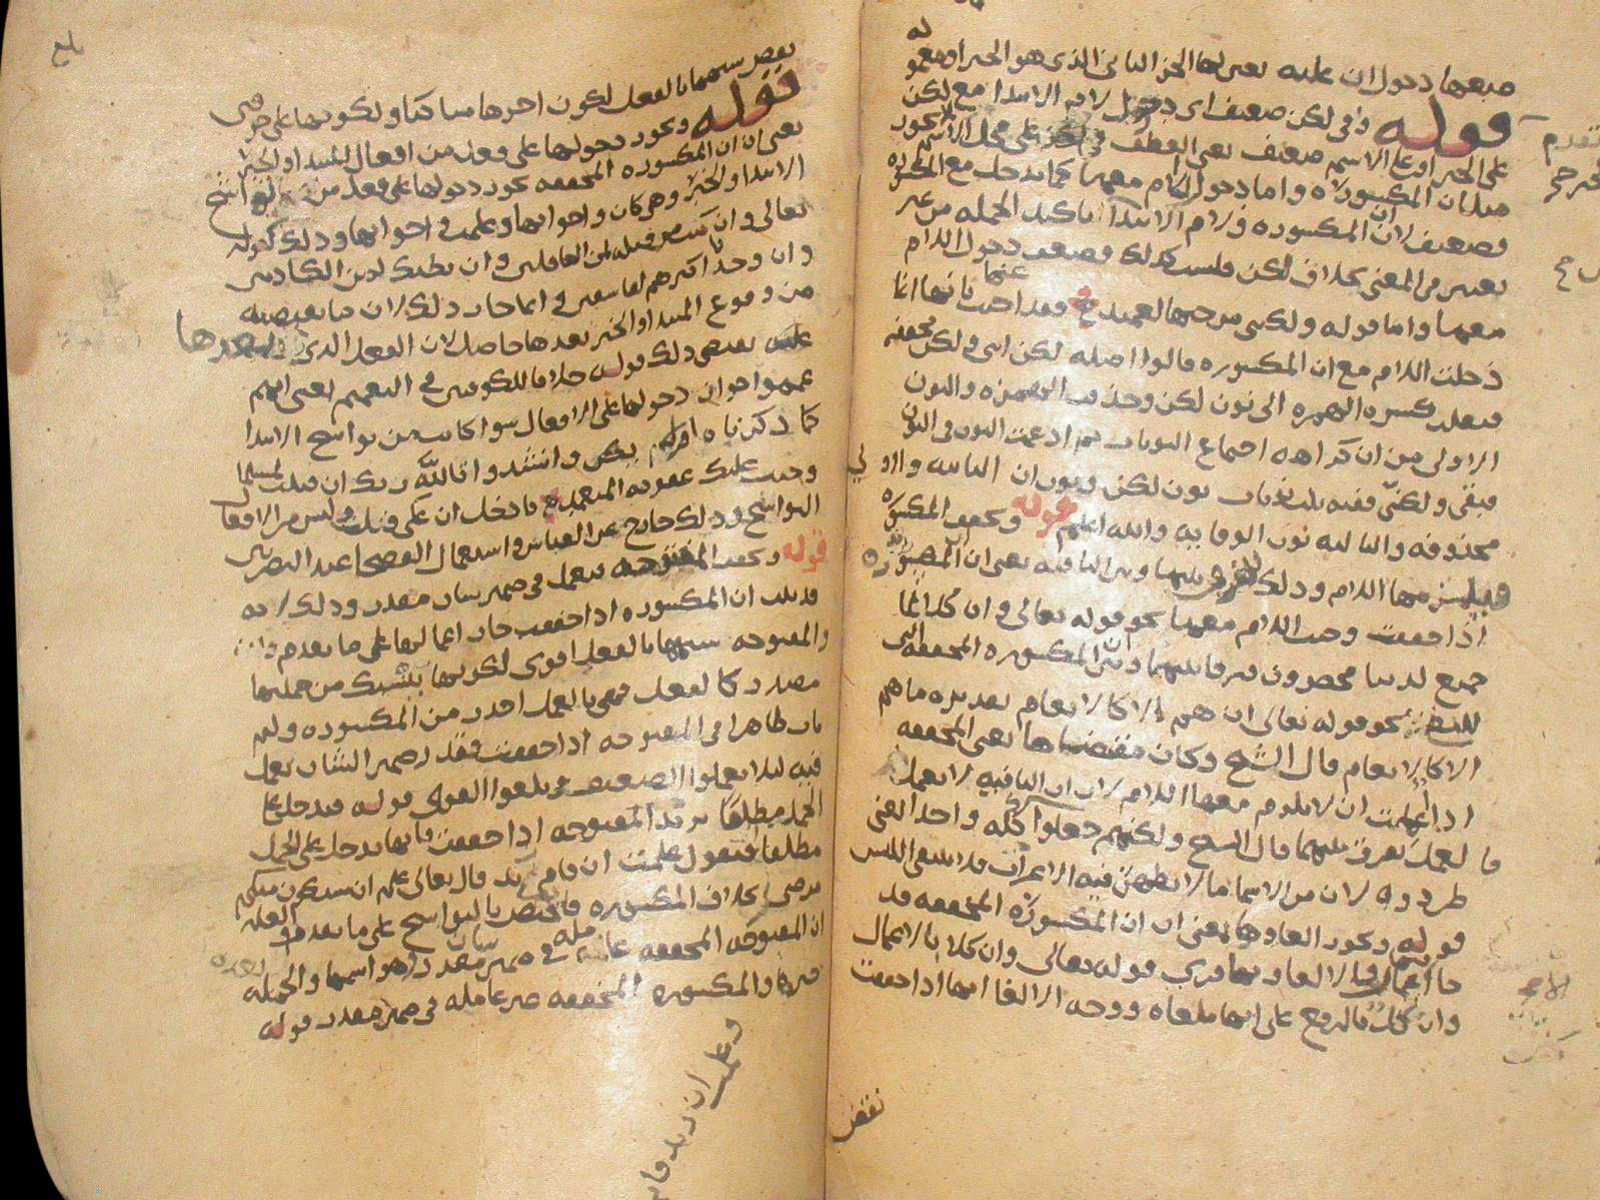 دخول ان عليه يعني لها الجزء الثاني الذي هو الخبر او معمو له
قوله وفي لكن ضعيف اي دخول لام الابتداء مع لكن
على الخبر او على الاسم ضعيف يعني العطف في لكن على محل الاسم
مثل ان المكسورة واما دخول اللام معها كما تدخل مع المكسورة
فضعيف لان ان المكسورة ولام الابتداء تاكيد الجملة من غير
تغيير في المعنى بخلاف لكن فليست كذلك فضعف دخول اللام
معها واما قوله ولكنني من حبها لعميد فقد اجيب عنها بانها انما
دخلت اللام مع ان المكسورة قالوا اصله لكن انني لكن مخففة
فنقل كسرة الهمزة الى نون لكن وحذف الهمزة والنون
الاولى من ان كراهة اجتماع النونات ثم ادغمت النون في النون
فبقي ولكنني ففيه ثلث نونات نون لكن ونون ان الثانية والاولى
محذوفة والثالثة نون الوقاية والله اعلم قوله وتخفف المكسورة
فيلزمها اللام وذلك للفرق بينها وبين النافية يعني ان المكسورة
اذا خففت وجب اللام معها نحو قوله تعالى وان كل لما
جميع لدينا محضرون فرقا بينها وبين ان المكسورة المخففة التي
للنفي نحو قوله تعالى ان هم الا كالانعام تقديره ما هم
الا كالانعام قال الشيخ وكان مقتضاها يعني المخففة
اذا اعملت ان لا يلزم معها اللام لان ان النافية لا تعمل
فالعمل يفرق بينهما قال الشيخ ولكنهم جعلوا كله واحدا لغى
طرد وه لان من الاسما ما لا يظهر فيه الاعراب فلا ينتفي اللبس
قوله ويجوز الغاوها يعني ان ان المكسورة المخففة قد
جا اعمالها والغاوها قري قوله تعالى وان كلا بالاعمال
وان كل بالرفع على انها ملغاة ووجه الالغا انها اذا خففت
نقص
تقدم
بلغ
نقص شبهها بالفعل لكون اخرها ساكنا ولكونها على حرفين
قوله ويجوز دخولها على فعل من افعال المبتدا والخبر
يعني ان ان المكسورة المخففة يجوز دخولها على فعل من نواسخ
الابتدا والخبر وهي كان واخواتها وعلمت واخواتها وذلك كقوله
تعالى وان كنت من قبله لمن الغافلين وان نظنك لمن الكاذبين
وان وجدنا اكثرهم لفاسقين وانما جاز ذلك لان ما تقتضيه
من وقوع المبتدا والخبر بعدها حاصل لان الفعل الذي بعدها
يقتضي ذلك قوله خلافا للكوفيين في التعميم يعني انهم
عمموا جواز دخولها على الافعال سوا كانت من نواسخ الابتدا
كما ذكرناه او لم يكن وانشدوا تالله ربك ان قتلت لمسلما
وجبت عليك عقوبة المتعمد فادخل ان على قتلت وليس من الافعال
النواسخ وذلك خارج عن القياس واستعمال الفصحا عند البصريين
قوله وتخفف المفتوحة فتعمل في ضمير شان مقدر وذلك لانه
قد ثبت ان المكسورة اذا خففت جاز اعمالها على ما تقدم
والمفتوحة شبهها بالفعل اقوى لكونها تنسبك من جملتها
مصدر كالفعل فهي بالعمل اجدر من المكسورة ولم
يات ظاهرا في المفتوحة اذا خففت فقدر ضمير الشان تعمل
فيه ليلا يعملوا الضعيف ويلغوا القوي قوله فتدخل على
الجمل مطلقا يريد المفتوحة اذا خففت فانها تدخل على الجمل
مطلقا فتقول علمت ان قام زيد قال تعالى علم ان سيكون منكم
مرضى بخلاف المكسورة فانها تختص بالنواسخ على ما تقدم
ان المفتوحة المخففة عاملة في ضمير شان مقدر وهو اسمها والجملة بعده
خبرها والمكسورة المخففة غير عاملة في ضمير مقدر قوله
وعلمت ان زيد قا